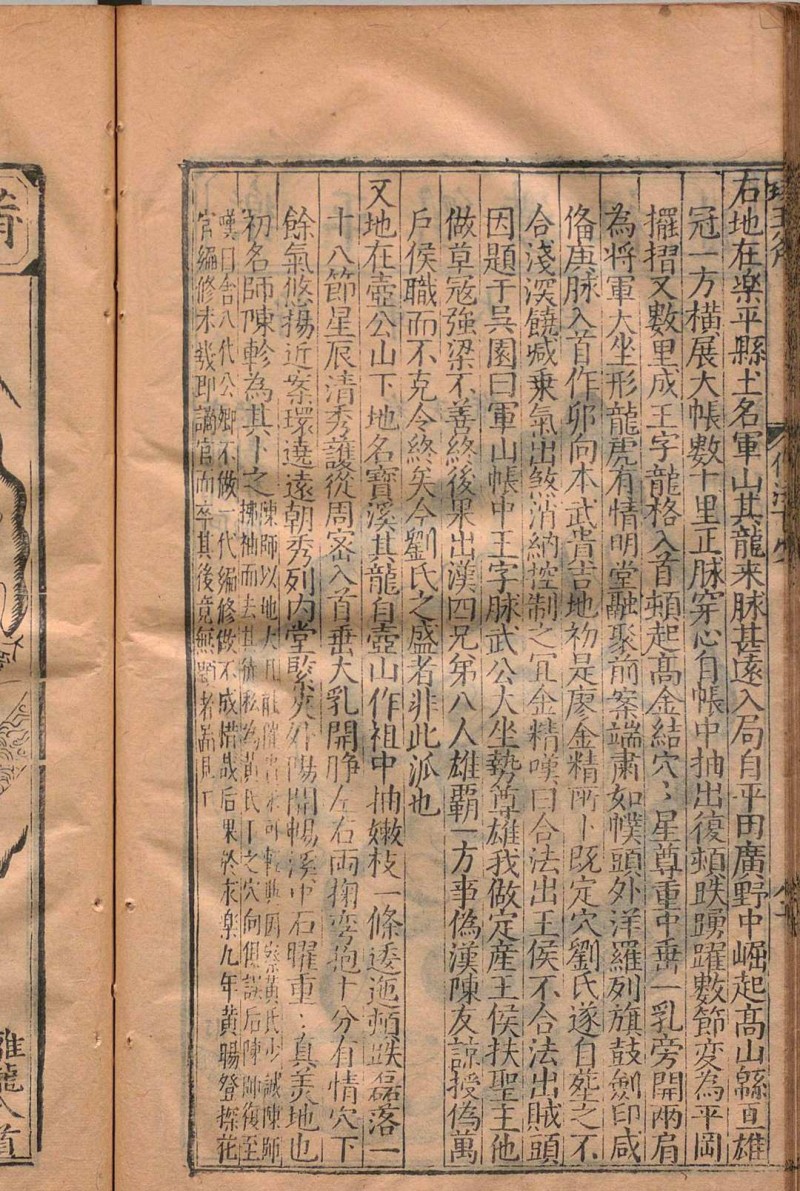 右地在樂平縣土名軍山其龍来脉甚遠入局自平田廣野中崛起髙山綿亘雄
冠一方横展大帳數十里正脉穿心自帳中抽出復頓跌踴躍數節変為平岡
擺摺又數里成王字龍格入首頓起髙金結穴〻星尊重中垂一乳旁開兩肩
為将軍大坐形龍虎有情明堂融聚前案端肅如幞頭外洋羅列旗鼓劍印咸
俻庚脉入首作卯向本武貴吉地初是廖金精所卜既定穴劉氏遂自塟之不
合淺深饒減乗氣出煞消納控制之冝金精嘆曰合法出王侯不合法出賊頭
因題于吳園曰軍山帳中王字脉武公大坐勢尊雄我做定産王侯扶聖主他
做草冠強梁不善終後果出漢四兄弟八人雄覇一方事偽漢陳友諒授偽萬
戶侯職而不克令終矣今劉氏之盛者非此派也
又地在壺公山下地名寳溪其龍自壺山作祖中抽嫩枝一條逶迤頓跌磊落一
十八節星辰清秀護從周宻入首垂大乳開睁左右両掬弯抱十分有情穴下
餘氣悠揚近案環遶遠朝秀列内堂緊夾外陽開暢溪中石曜重〻真美地也
初名師陳軫為其卜之陳師以地大
拂袖而去其後松為黄氏下之穴向俱誤后陳師復至
嘆曰舍八代公卿不做一代編修做不成惜哉后果於永樂九年黄暘登探花
官編修未幾即謫官而卒其後竟無